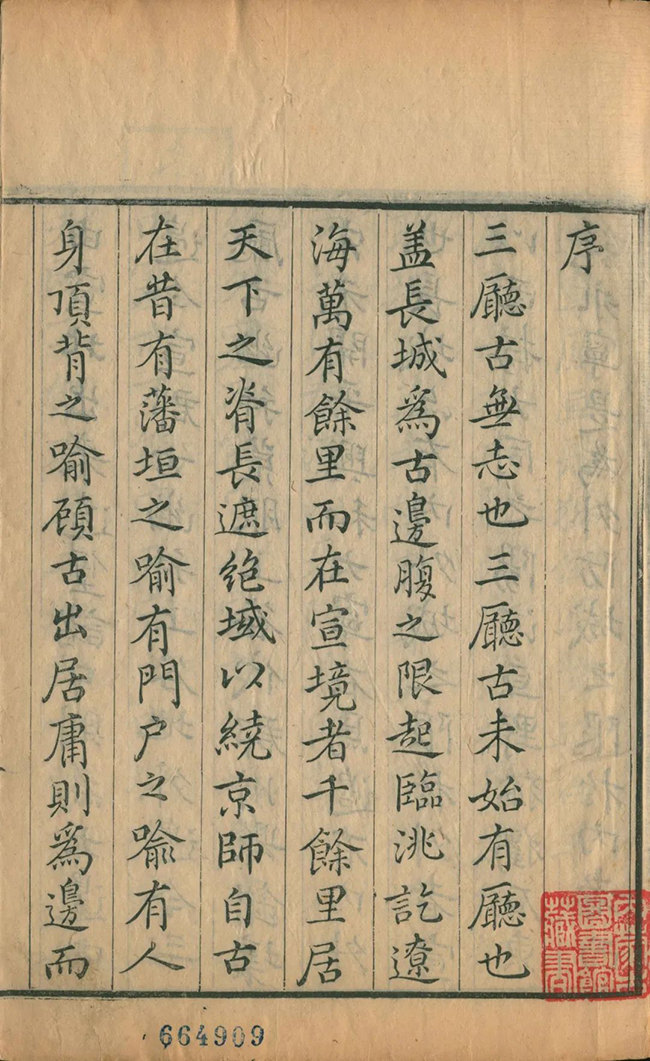 序
三廳古無志也三廳古未始有廳也
盖長城爲古邊腹之限起臨洮訖遼
海萬有餘里而在宣境者千餘里居
天下之脊長遮絶域以繞京師自古
在昔有藩垣之喻有門户之喻有人
身頂背之喻顧古出居庸則爲邊而
圖書館
藏書
664909